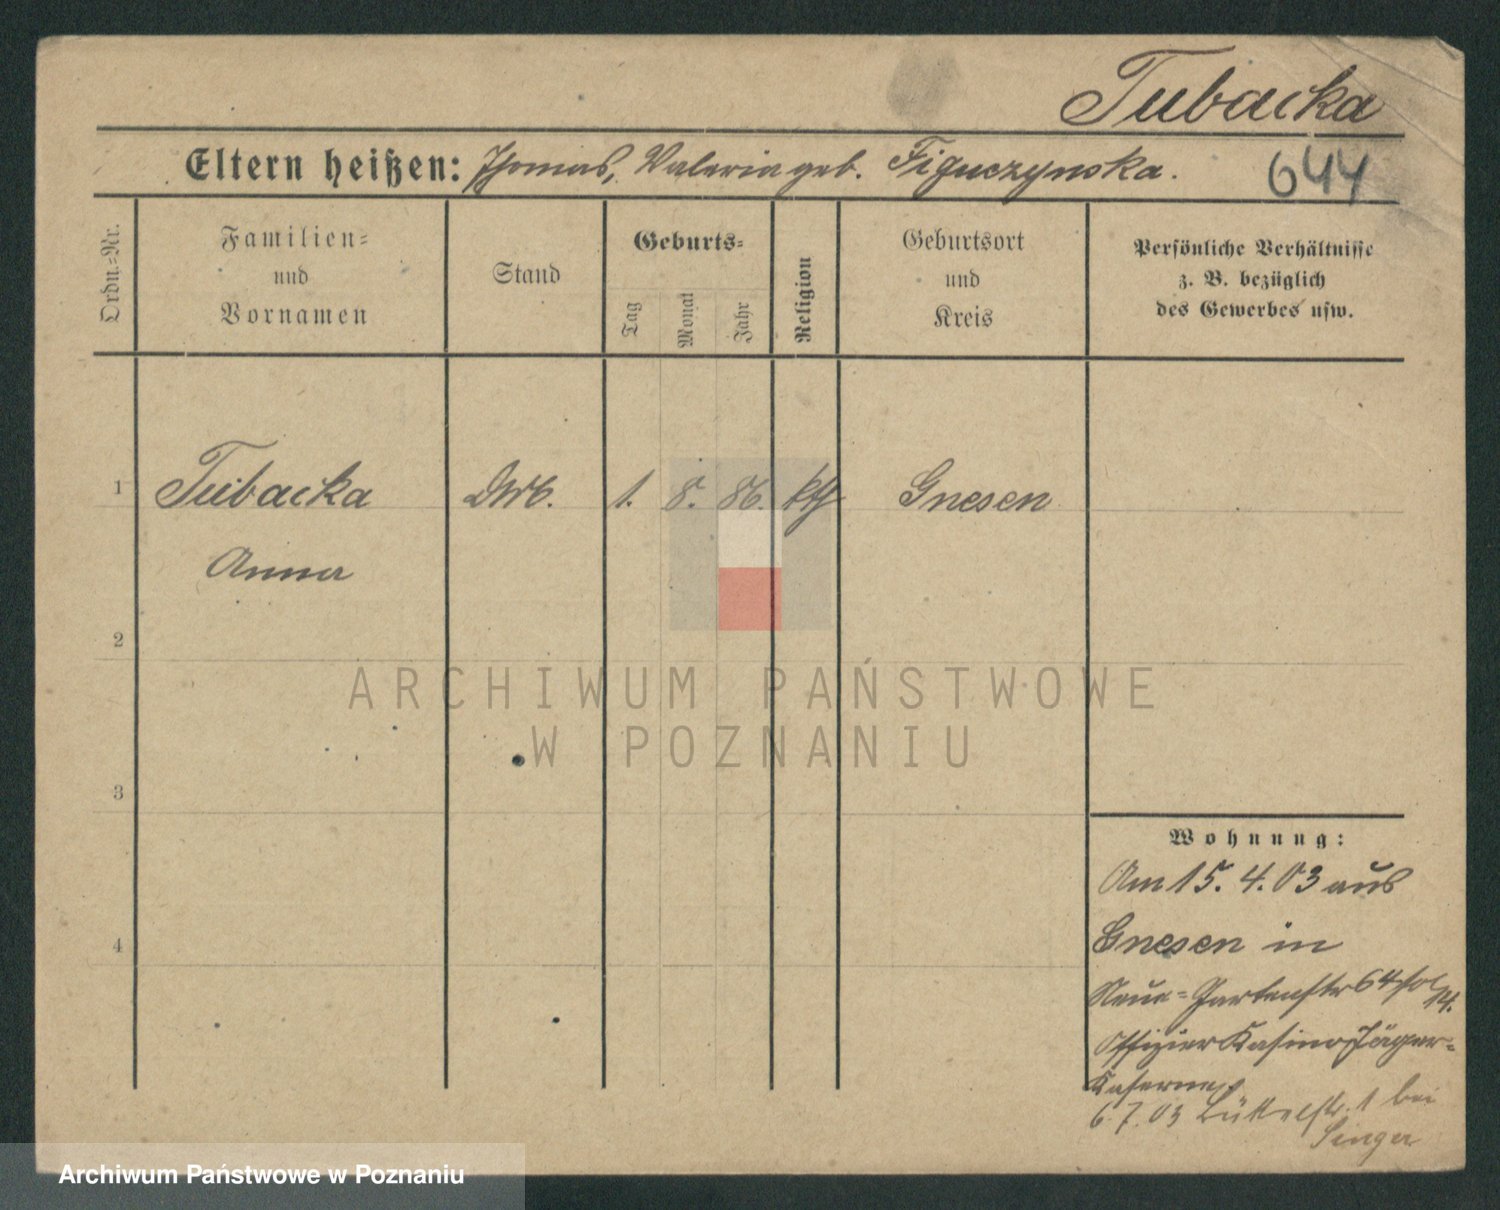 Tubacka
Eltern heißen: Thomas, Valeria geb. Figuczynska.
644
Ordn.-Nr.
Familien-
und
Vornamen
Stand
Geburts-
Tag
Monat
Jahr
Religion
Geburtsort
und
Kreis
Persönliche Verhältnisse
z. B. bezüglich
des Gewerbes usw.
1
Tubacka
1. 8. 86. kth
Gnesen
Anna
2
ARCHIWUM PAŃSTWOWE
W POZNANIU
3
Wohnung:
Am 15. 4. 03 aus
4
Gnesen in
Neue-Gartenstr 64
Offizier Kasino Jäger-
Kaserne
6.7.03 1 bei
Singer
Archiwum Państwowe w Poznaniu